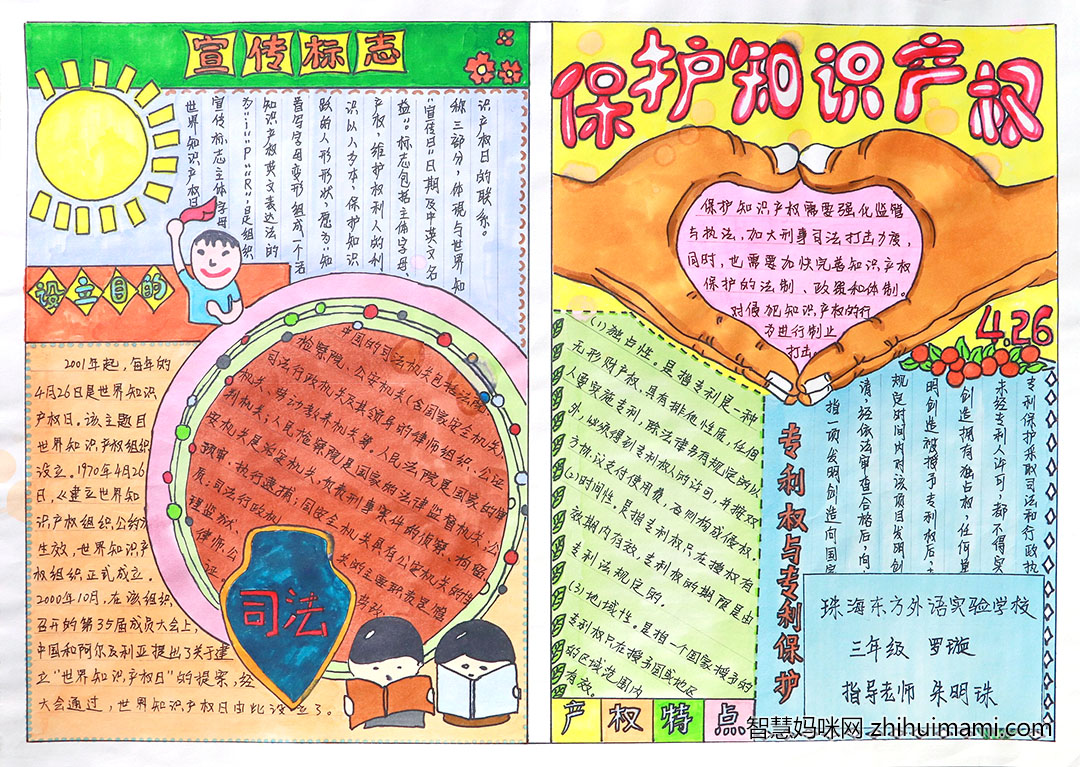 宣传标志
识产权日的联系。
称三部分，体现与世界知
"宣传日"日期及中英文名
益"。标志包括主体字母、
产权，维护权利人的利
识以人为本，保护知识
跃的人形形状，愿为"知
首写字母变形，组成一个活
知识产权英文表达法的
为"i""P""R"，是组织
宣传标志主体字母
世界知识产权日
设立目的
2001年起，每年的
4月26日是世界知识
产权日。该主题日
世界知识产权组织
设立。1970年4月26
日，《建立世界知
识产权组织公约》
生效，世界知识产
权组织正式成立。
2000年10月，在该组织
召开的第35届成员大会上，
中国和阿尔及利亚提出了关于建
立"世界知识产权日"的提案，经
大会通过，世界知识产权日由此设立了。
中国的司法机关包括法院、
检察院、公安机关(含国家安全机关)
司法行政机关及其领导的律师组织、公证
机关、劳动教养机关等。人民法院是国家的审
判机关；人民检察院是国家的法律监督机关；公
安机关是治安机关，负责刑事案件的侦察、拘留、
预审、执行逮捕；国安全机关具有公安机关的性
质；司法行政机
司法
保护知识产权
保护知识产权需要强化监管
与执法，加大刑事司法打击力度，
同时，也需要加快完善知识产权
保护的法制、政策和体制。
对侵犯知识产权的行
为进行制止
打击。
4.26
(1)独占性。是指专利是一种
无形财产权，具有排他性质，任何
人要实施专利，除法律另有规定的以
外，必须得到专利权人的许可，并按双
方协议支付使用费，否则构成侵权。
(2)时间性。是指专利权只在授权有
效期内有效。专利权的期限是由
专利法规定的。
(3)地域性。是指一个国家授予的
专利权只在授予国或地区
的区域范围内
有效。
产权特点
专利权与专利保护
指一项发明创造向国家
请，经依法审查合格后，向
规定时间内对该项目发明创
明创造被授予专利权后，
创造拥有独占权，任何单
未经专利人许可，都不得实
专利保护采取司法和行政执
珠海东方外语实验学校
三年级 罗璇
指导老师 朱明诛
智慧妈咪网 zhihuimami.com